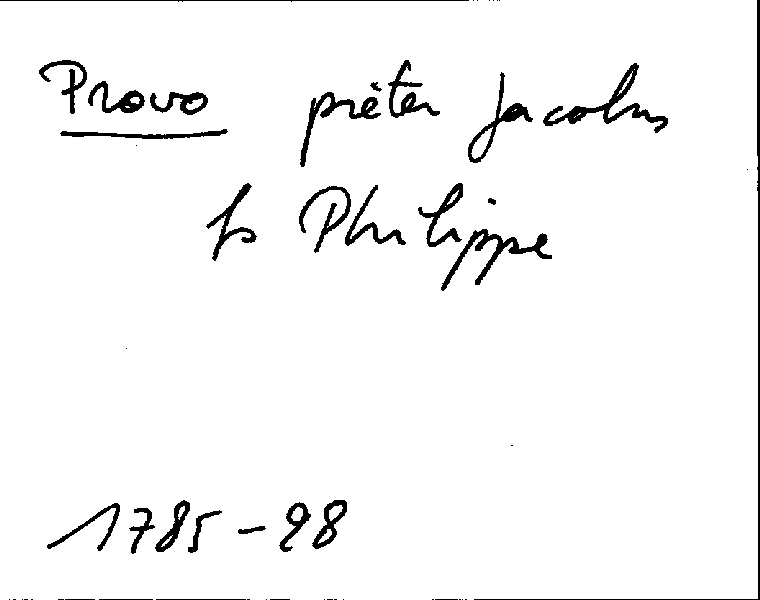 Provo prèter Jacobus
fs Philippe
1785-98